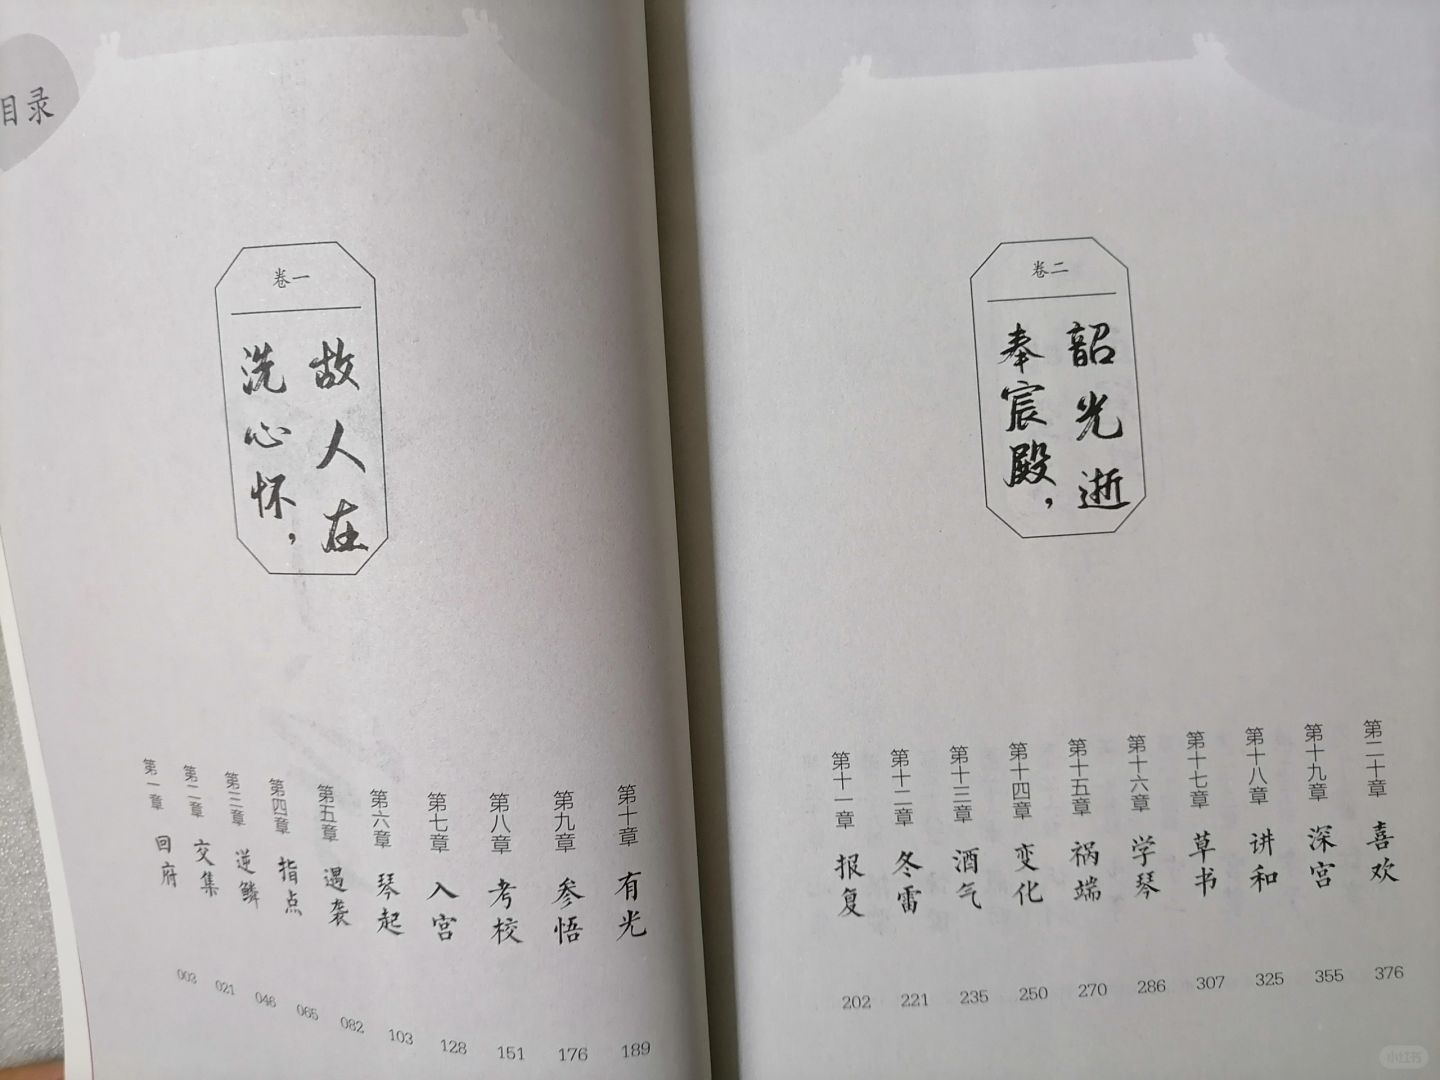 目录
卷一
洗心怀，
故人在
第一章 回府 003
第二章 交集 021
第三章 逆鳞 046
第四章 指点 065
第五章 遇袭 082
第六章 琴起 103
第七章 入宫 128
第八章 考校 151
第九章 参悟 176
第十章 有光 189
卷二
奉宸殿，
韶光逝
第十一章 报复 202
第十二章 冬雷 221
第十三章 酒气 235
第十四章 变化 250
第十五章 祸端 270
第十六章 学琴 286
第十七章 草书 307
第十八章 讲和 325
第十九章 深宫 355
第二十章 喜欢 376
小红书